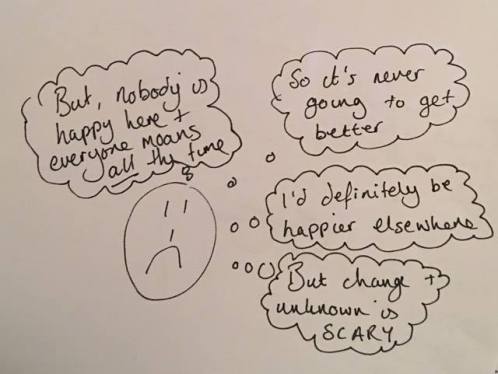 But, nobody is
happy here +
everyone moans
all the time
So it's never
going to get
better
I'd definitely be
happier elsewhere
But change +
unknown is
SCARY